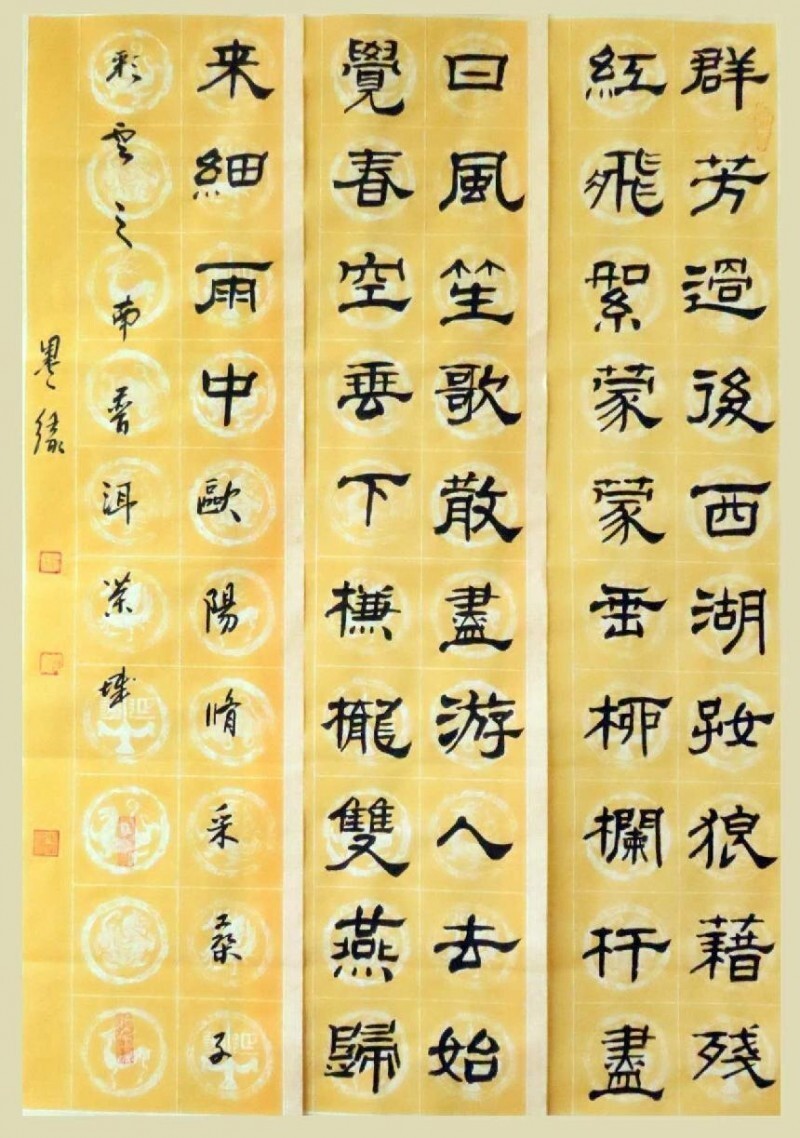 群芳過後西湖好狼藉殘
紅飛絮蒙蒙垂柳欄杆盡
日風笙歌散盡游人去始
覺春空垂下櫳雙燕歸
来細雨中歐陽脩采桑子
彩雲之南普洱茶城